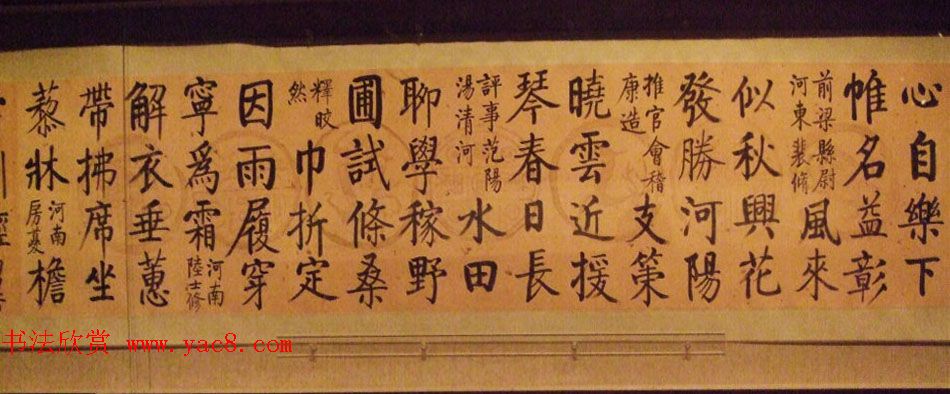 心自樂下
帷名益彰
前梁縣尉
河東裴脩
風來
似秋興花
發勝河陽
推官會稽
康造
支策
曉雲近援
琴春日長
評事范陽
湯清河
水田
聊學稼野
圃試條桑
釋皎
然
巾折定
因雨履穿
寧爲霜
河南
陸士修
解衣垂蕙
帶拂席坐
藜牀
河南
房夔
檐
书法欣赏 www.yac8.com